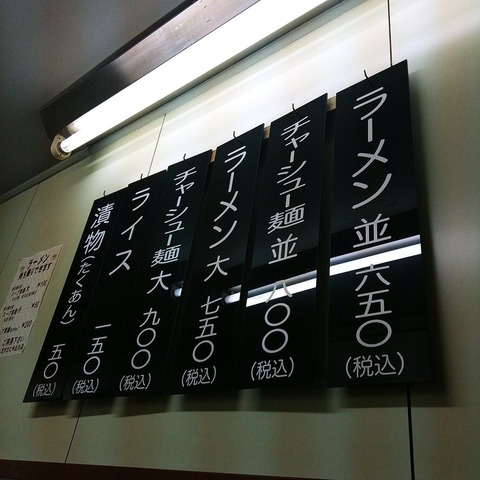 ラーメン 並 六五〇(税込)
チャーシュー麺 並 八〇〇(税込)
ラーメン 大 七五〇(税込)
チャーシュー麺 大 九〇〇(税込)
ライス 一五〇(税込)
漬物(たくあん) 五〇(税込)
ラーメン